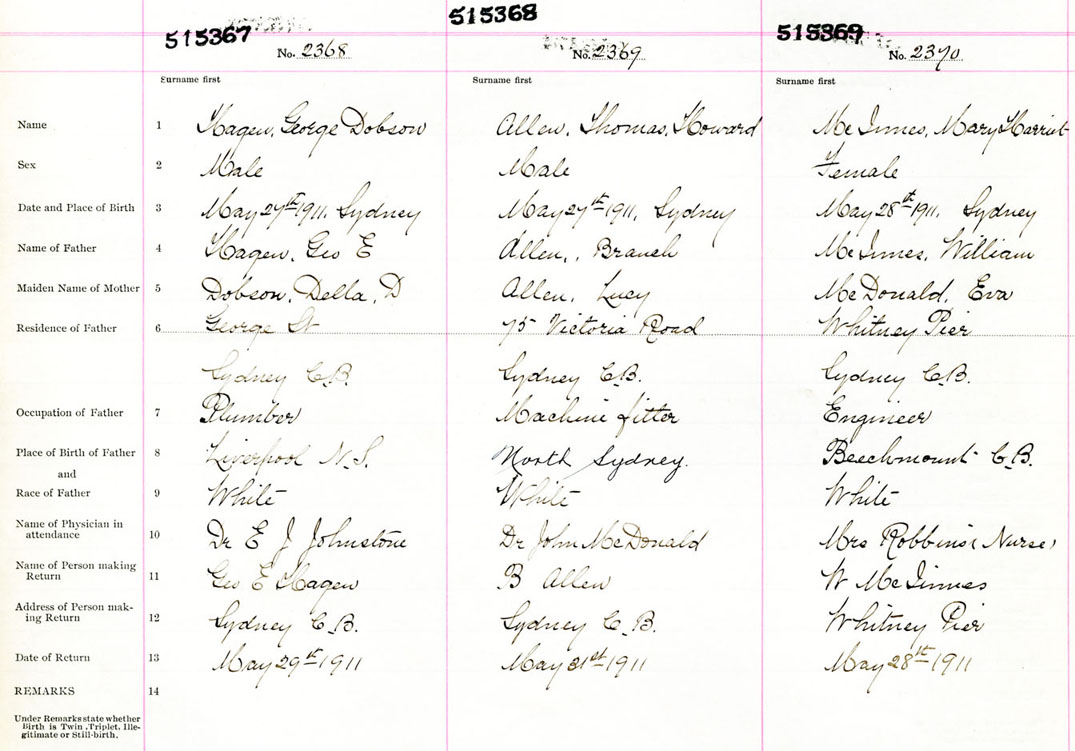 515367 515368 515369
No. 2368 No. 2369 No. 2370
Surname first Surname first Surname first
Name 1 Hagen, George Dobson Allen, Thomas, Howard Mc Innes, Mary Harriet
Sex 2 Male Male Female
Date and Place of Birth 3 May 27th 1911, Sydney May 27th 1911, Sydney May 28th 1911, Sydney
Name of Father 4 Hagen, Geo E Allen,, Branch Mc Innes, William
Maiden Name of Mother 5 Dobson, Della, D Allen, Lucy Mc Donald, Eva
Residence of Father 6 George St 75 Victoria Road Whitney Pier
Sydney C.B. Sydney C.B. Sydney C.B.
Occupation of Father 7 Plumber Machine fitter Engineer
Place of Birth of Father 8 Liverpool N.S. North Sydney. Beechmount C.B.
and
Race of Father 9 White White White
Name of Physician in
attendance 10 Dr E J Johnstone Dr John McDonald Mrs Robbins (Nurse)
Name of Person making
Return 11 Geo E Hagen B Allen W McInnes
Address of Person mak-
ing Return 12 Sydney C.B. Sydney C.B. Whitney Pier
Date of Return 13 May 29th 1911 May 31st 1911 May 28th 1911
REMARKS 14
Under Remarks state whether
Birth is Twin, Triplet, Ille-
gitimate or Still-birth.